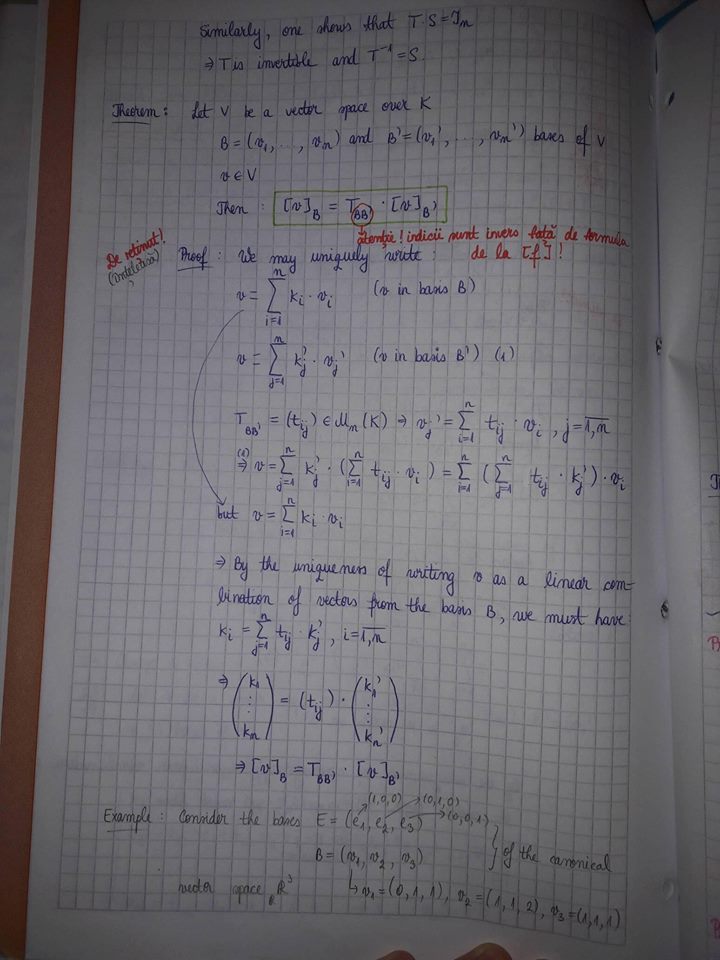 Similarly, one shows that T·S=Iₙ
⇒ T is invertible and T⁻¹=S.
Theorem: Let V be a vector space over K
B=(v₁, ..., vₙ) and B'=(v₁', ..., vₙ') bases of V
v∈V
Then: [v]_B = T_BB' · [v]_B'
atenție! indicii sunt invers față de formula
de la [f]!
De reținut!
Proof: We may uniquely write:
v = ∑_{i=1}^{n} kᵢ·vᵢ (v in basis B)
v = ∑_{j=1}^{n} kⱼ'·vⱼ' (v in basis B') (1)
T_BB' = (tᵢⱼ) ∈ Mₙ(K) ⇒ vⱼ' = ∑_{i=1}^{n} tᵢⱼ·vᵢ, j=\overline{1,n}
(1)⇒ v = ∑_{j=1}^{n} kⱼ'·(∑_{i=1}^{n} tᵢⱼ·vᵢ) = ∑_{i=1}^{n} (∑_{j=1}^{n} tᵢⱼ·kⱼ')·vᵢ
but v = ∑_{i=1}^{n} kᵢ·vᵢ
⇒ By the uniqueness of writing v as a linear com-
bination of vectors from the basis B, we must have:
kᵢ = ∑_{j=1}^{n} tᵢⱼ·kⱼ', i=\overline{1,n}
⇒ (k₁ ⋮ kₙ) = (tᵢⱼ)·(k₁' ⋮ kₙ')
⇒ [v]_B = T_BB' · [v]_B'
(1,0,0) (0,1,0)
Example: Consider the bases E = (e₁, e₂, e₃) (0,0,1)
B = (v₁, v₂, v₃) } of the canonical
vector space _Rℝ³ ↳ v₁=(0,1,1), v₂=(1,1,2), v₃=(1,1,1)